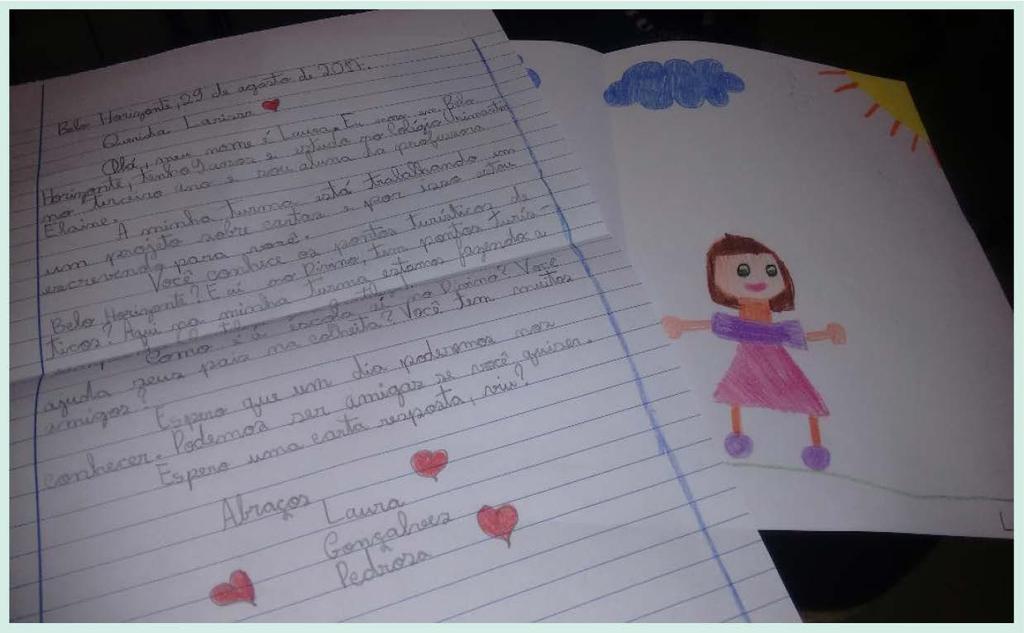 Belo Horizonte, 29 de agosto de 2017.
Querida Larissa
Olá, meu nome é Laura. Eu moro em Belo
Horizonte, tenho 9 anos e estudo no Colégio
no terceiro ano e sou aluna da professora
Elaine.
A minha turma está trabalhando em
um projeto sobre cartas e por isso estou
escrevendo para você.
Você conhece os pontos turísticos de
Belo Horizonte? E aí no Divino, tem pontos turís-
ticos? Aqui na minha turma estamos fazendo a
Como é a escola aí no Divino? Você
ajuda seus pais na colheita? Você tem muitos
amigos?
Espero que um dia poderemos nos
conhecer. Podemos ser amigas se você quiser.
Espero uma carta resposta, viu?
Abraços
Laura
Gonçalves
Pedrosa